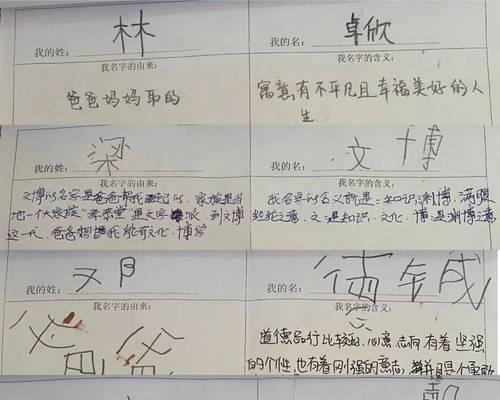 我的姓：林
我的名：卓欣
我名字的由来：
我名字的含义：
爸爸妈妈取的
寓意有不平凡且幸福美好的人
生
我的姓：梁
我的名：文博
我名字的由来：
我名字的含义：
文博的名字是爸爸帮我起的，家族是当
地一个大家族 堂 是文字 派，到文博
这一代，爸爸想 我能有文化、博学
我名字的含义就是：知识渊博，满腹
经纶之意，文是知识、文化，博是渊博之意
我的姓：
我的名：
我名字的由来：
我名字的含义：
爸爸
道德品行比较好，心意志向有着坚强
的个性，也有着刚强的意志，